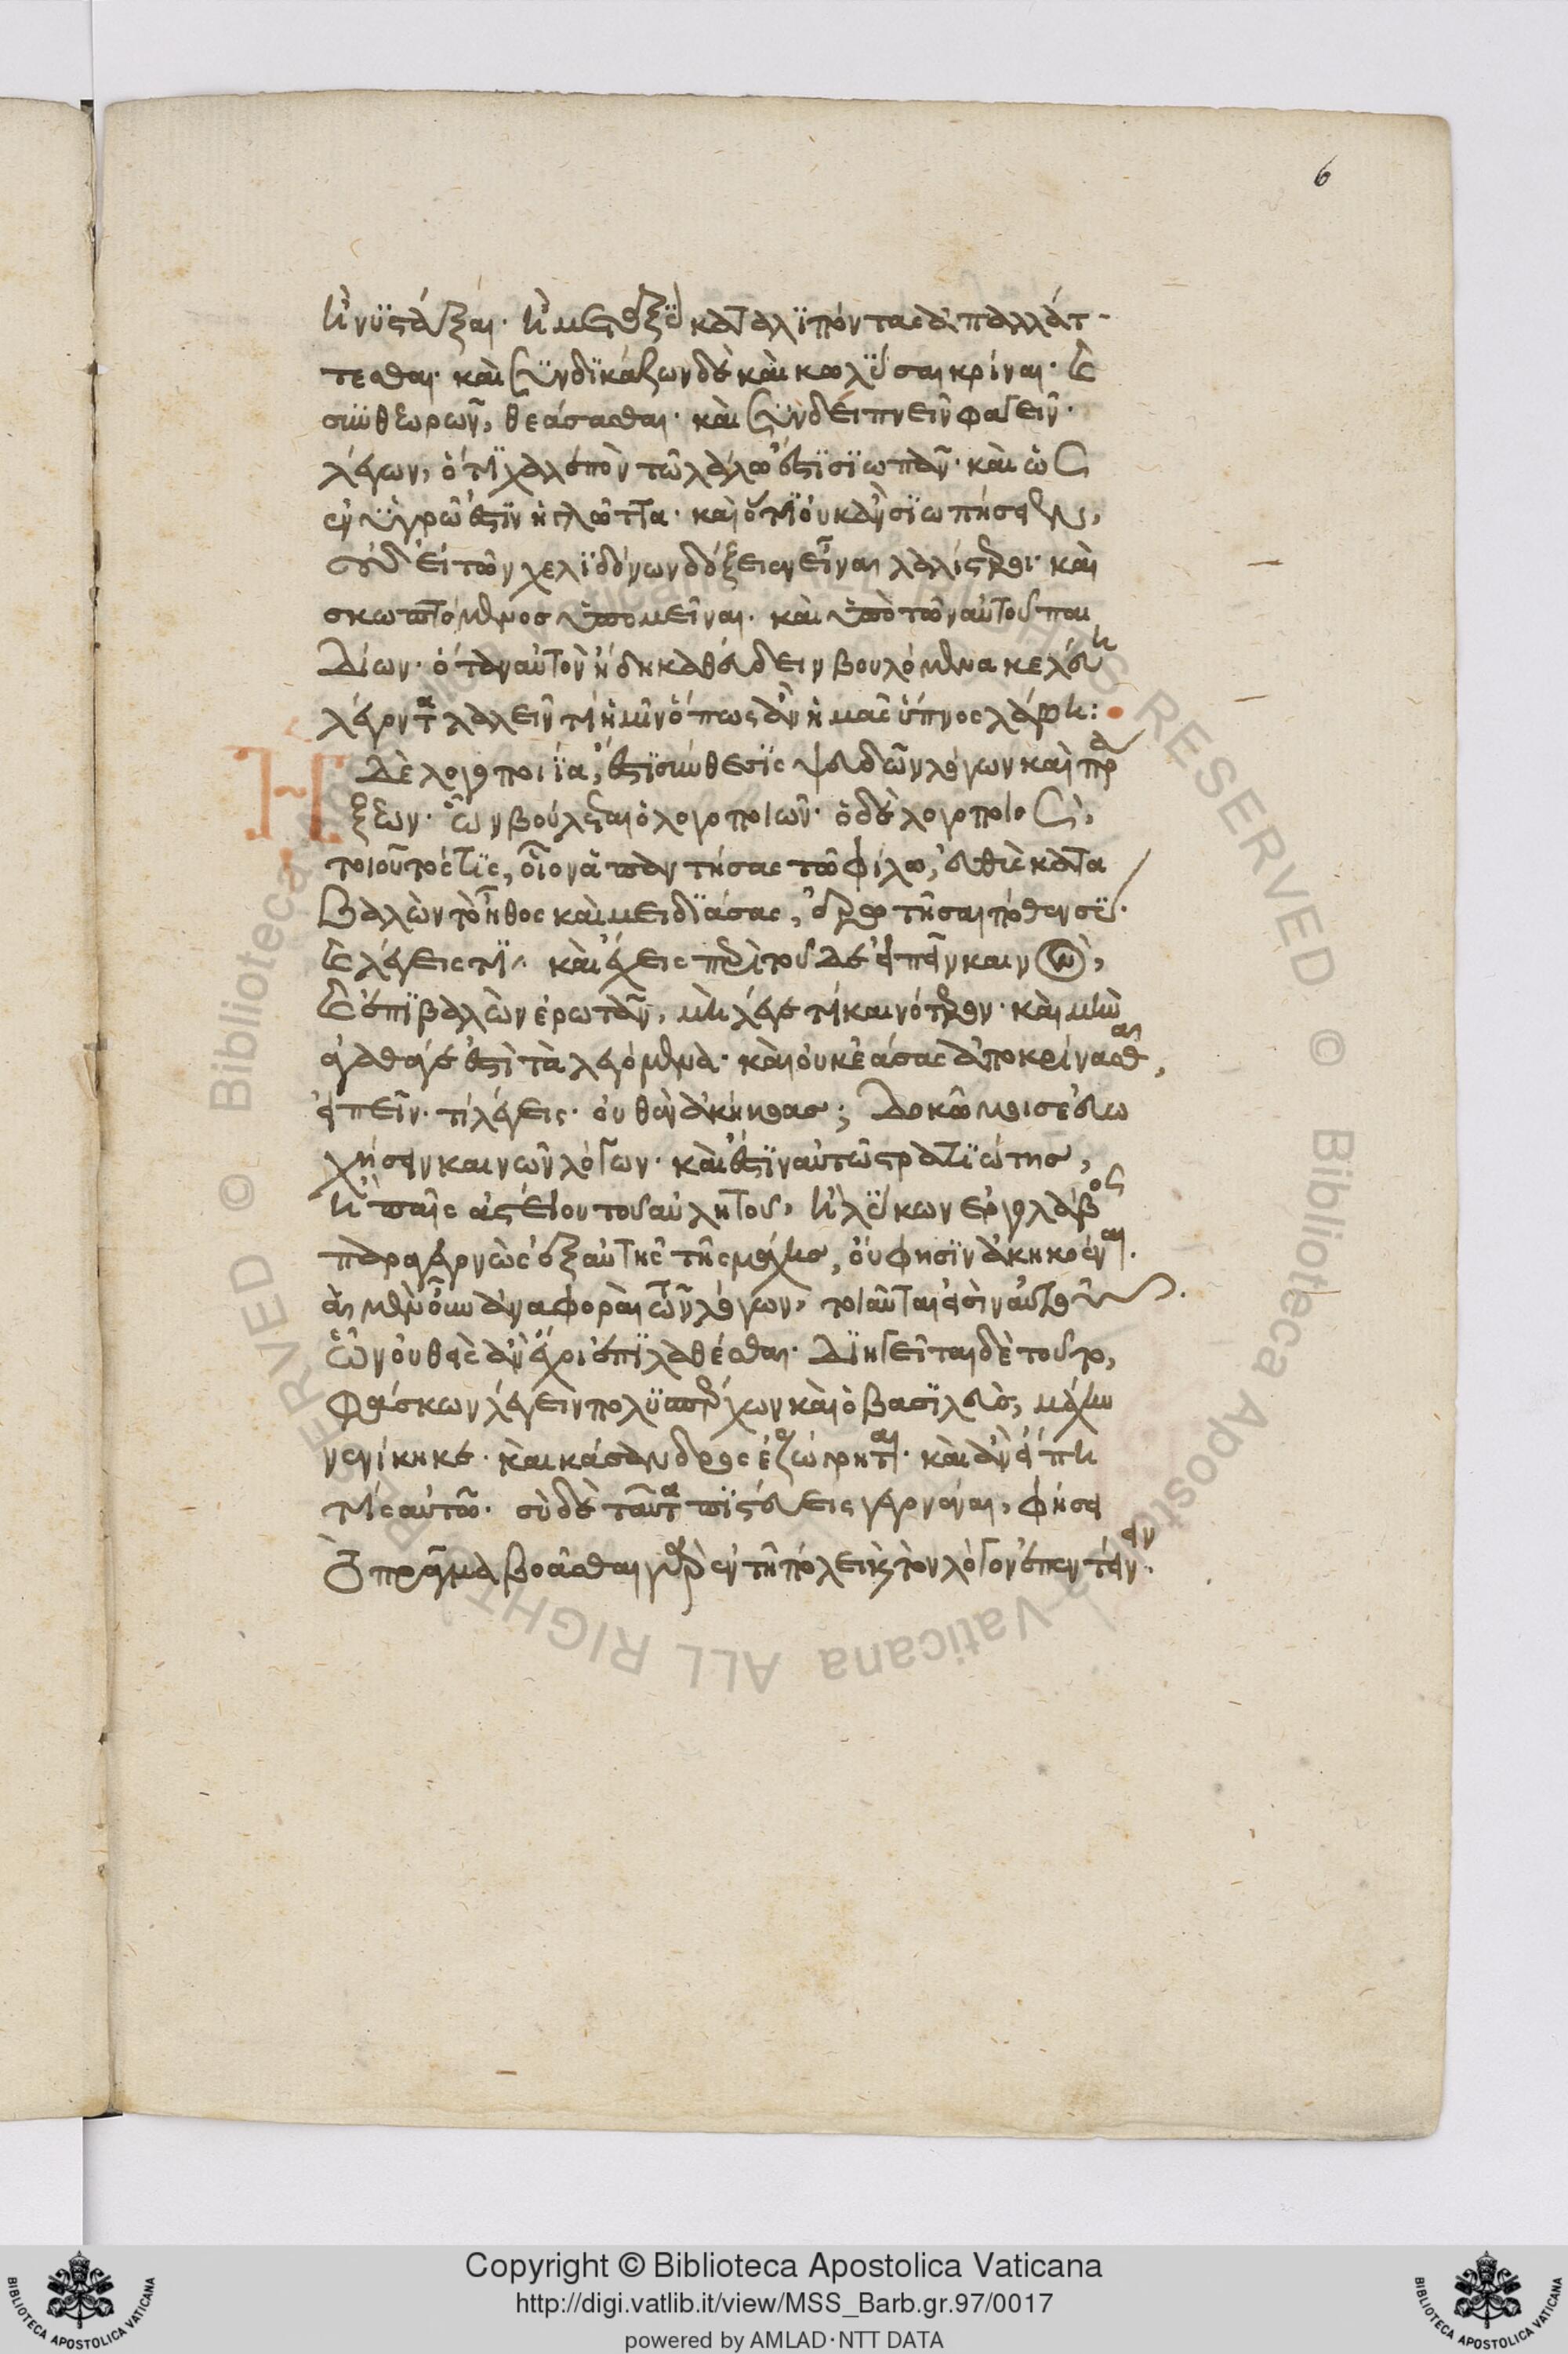 6
ἢ νυστάξαι· ἢ μεταξὺ καταλιπόντας ἀπαλλάτ-
τεσθαι· καὶ συνδικάζων δὲ καὶ κωλῦσαι κρίναι· καὶ
συνθεωρῶν, θεάσασθαι· καὶ συνδειπνεῖν φαγεῖν·
λέγων, ὅτι χαλεπὸν τῶ λάλω ἐστὶ σιωπᾶν· καὶ ὡς
ἐν ὑγρῶ ἐστὶν ἡ γλῶττα· καὶ ὅτι οὐκ ἂν σιωπήσειεν,
οὐδ' εἰ τῶν χελιδόνων δόξειεν εἶναι λαλίστερος· καὶ
σκωπτόμενος ὑπομεῖναι. καὶ ὑπὸ τῶν αὐτοῦ παι
δίων· ὅταν αὐτὸν ἤδη καθεύδειν βουλόμενα κελεύη
λέγοντα λαλεῖν τι ἡμῖν ὅπως ἂν ἡμᾶς ὕπνος λάβη:
Η δὲ λογοποιΐα, ἐστὶ σύνθεσις ψευδῶν λόγων καὶ πρά
ξεων· ὧν βούλεται ὁ λογοποιῶν· ὁ δὲ λογοποιὸς,
τοιοῦτός τις, οἷον ἀπαντήσας τῶ φίλω, εὐθὺς κατα
βαλὼν τὸ ἦθος καὶ μειδιάσας, ἐρωτῆσαι πόθεν σύ·
καὶ λέγεις τι· καὶ ἔχεις περὶ τοῦδε εἰπεῖν καινὸν,
καὶ ἐπιβαλὼν ἐρωτᾶν, μὴ λέγεταί τι καινότερον· καὶ μὴν
ἀγαθά γέ ἐστι τὰ λεγόμενα· καὶ οὐκ ἐάσας ἀποκρίνασθαι,
εἰπεῖν· τί λέγεις· οὐθὲν ἀκήκοας; δοκῶ μοί σε εὐω
χήσειν καινῶν λόγων· καὶ ἔστιν αὐτῶ στρατιώτης,
ἢ παῖς ἀστείου τοῦ αὐλητοῦ, ἢ λύκων ἐργολάβος
παραγεγονὼς ἐξ αὐτῆς τῆς μάχης, οὗ φησὶν ἀκηκοέναι.
αἱ μὲν οὖν ἀναφοραὶ τῶν λόγων, τοιαῦταί εἰσιν αὐτοῦ.
ὧν οὐθεὶς ἂν ἔχοι ἐπιλαθέσθαι· διηγεῖται δὲ τοῦτο,
φάσκων λέγειν πολυπερχων καὶ ὁ βασιλεὺς, μάχην
νενίκηκε· καὶ κάσανδρος ἐζώγρηται· καὶ ἂν εἴπη
τις αὐτῶ· σὺ δὲ ταῦτα πιστεύεις γεγονέναι, φήσει
τὸ πρᾶγμα βοᾶσθαι γὰρ ἐν τῆ πόλει καὶ τὸν λόγον ἐπεντείνειν·
Copyright © Biblioteca Apostolica Vaticana
http://digi.vatlib.it/view/MSS_Barb.gr.97/0017
powered by AMLAD·NTT DATA